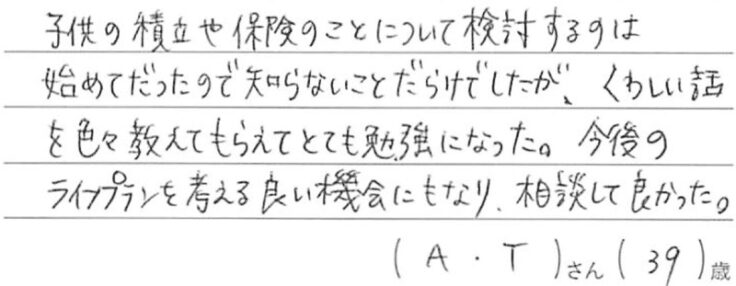 子供の積立や保険のことについて検討するのは
始めてだったので知らないことだらけでしたが、くわしい話
を色々教えてもらえてとても勉強になった。今後の
ライフプランを考える良い機会にもなり、相談して良かった。
(A・T)さん(39)歳